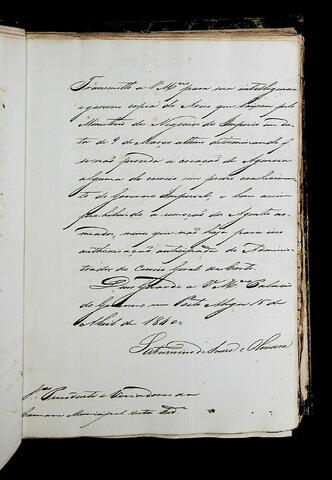 Transmitto a V. Mces para sua intelligencia
e governo copia do Aviso que baixou pelo
Ministerio dos Negocios do Imperio em da-
ta de 9 de Março ultimo determinando q̃
se não proceda a creação de Agencia
alguma de correio sem previo conhecimen-
to do Governo Imperial, e bem assim
prohibindo a remoção do Agente no-
meado, nem que não haja para isso
authorisação antecipada do Adminis-
trador do Correio Geral da Corte.
Deus Guarde a V. Mces Palacio
do Governo em Porto Alegre 15 de
Abril de 1840.
Saturnino de Souza e Oliveira
Snres Presidente e Vereadores da
Camara Municipal desta Cid.